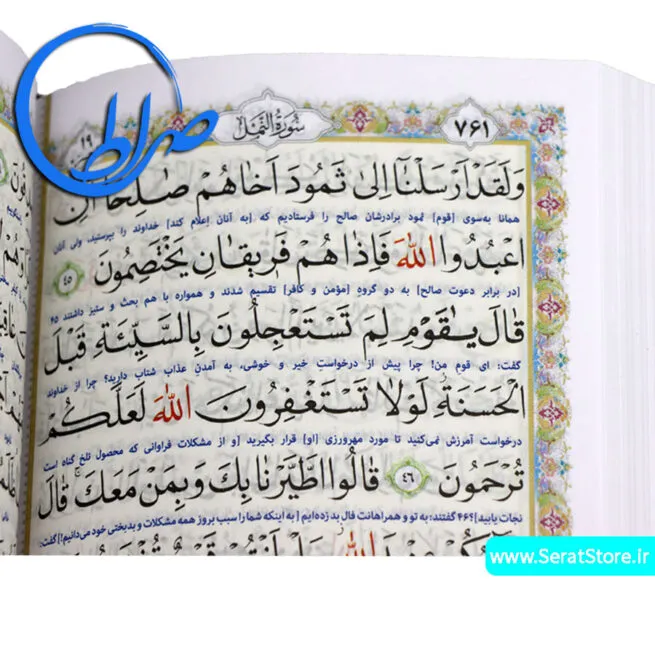 صراط
۱۹
سُورَةُ النَّمْل
۷۶۱
وَلَقَدْ اَرْسَلْنَآ اِلىٰ ثَمُودَ اَخَاهُمْ صَالِحًا اَنِ
همانا به‌سوی [قوم] ثمود برادرشان صالح را فرستادیم که [به آنان اعلام کند] خداوند را بپرستید، ولی آنان
اعْبُدُوا اللّٰهَ فَاِذَا هُمْ فَرِيقَانِ يَخْتَصِمُونَ ﴿۴۵﴾
[در برابر دعوت صالح] به دو گروهِ [مؤمن و کافر] تقسیم شدند و همواره با هم بحث و ستیز داشتند ۴۵
قَالَ يٰقَوْمِ لِمَ تَسْتَعْجِلُونَ بِالسَّيِّئَةِ قَبْلَ
گفت: ای قوم من! چرا پیش از درخواستِ خیر و خوشی، به آمدنِ عذاب شتاب دارید؟ چرا از خداوند
الْحَسَنَةِ لَوْلَا تَسْتَغْفِرُونَ اللّٰهَ لَعَلَّكُمْ
درخواست آمرزش نمی‌کنید تا مورد مهرورزی [او] قرار بگیرید [و از مشکلات فراوانی که محصول تلخ گناه است
تُرْحَمُونَ ﴿۴۶﴾ قَالُوا اطَّيَّرْنَا بِكَ وَبِمَنْ مَعَكَ قَالَ
نجات یابید]؟ ۴۶ گفتند: به تو و همراهانت فال بد زده‌ایم [به اینکه شما را سبب بروز همه مشکلات و بدبختی خود می‌دانیم!] گفت:
اللّٰهِ
www.SeratStore.ir